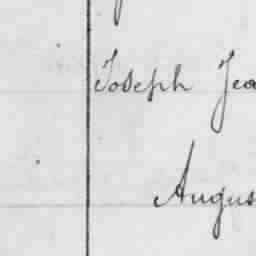 Joseph Jea
Augus